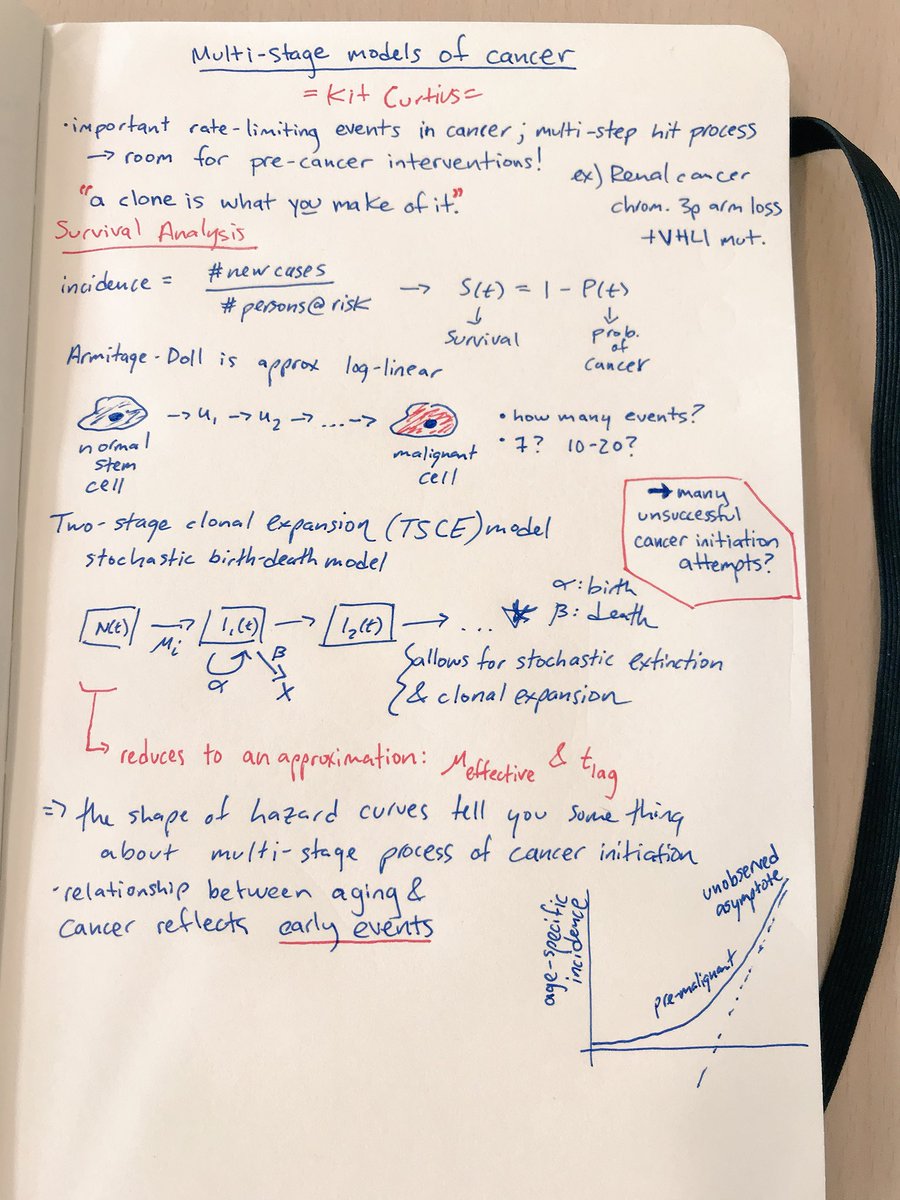 Multi-stage models of cancer
= Kit Curtius =
• important rate-limiting events in cancer; multi-step hit process
→ room for pre-cancer interventions!
"a clone is what you make of it."
ex) Renal cancer
chrom. 3p arm loss
+VHL1 mut.
Survival Analysis
incidence = #new cases / # persons@risk → S(t) = 1 - P(t)
↓ Survival
↓ prob. of cancer
Armitage-Doll is approx log-linear
→ u₁ → u₂ → ... →
normal
stem
cell
malignant
cell
• how many events?
• 7? 10-20?
→ many
unsuccessful
cancer initiation
attempts?
Two-stage clonal expansion (TSCE) model
stochastic birth-death model
α: birth
β: death
N(t) → I₁(t) → I₂(t) → ...
μi
α
β
X
allows for stochastic extinction
& clonal expansion
↳ reduces to an approximation: μeffective & tlag
⇒ the shape of hazard curves tell you something
about multi-stage process of cancer initiation
• relationship between aging &
cancer reflects early events
age-specific
incidence
pre-malignant
unobserved
asymptote